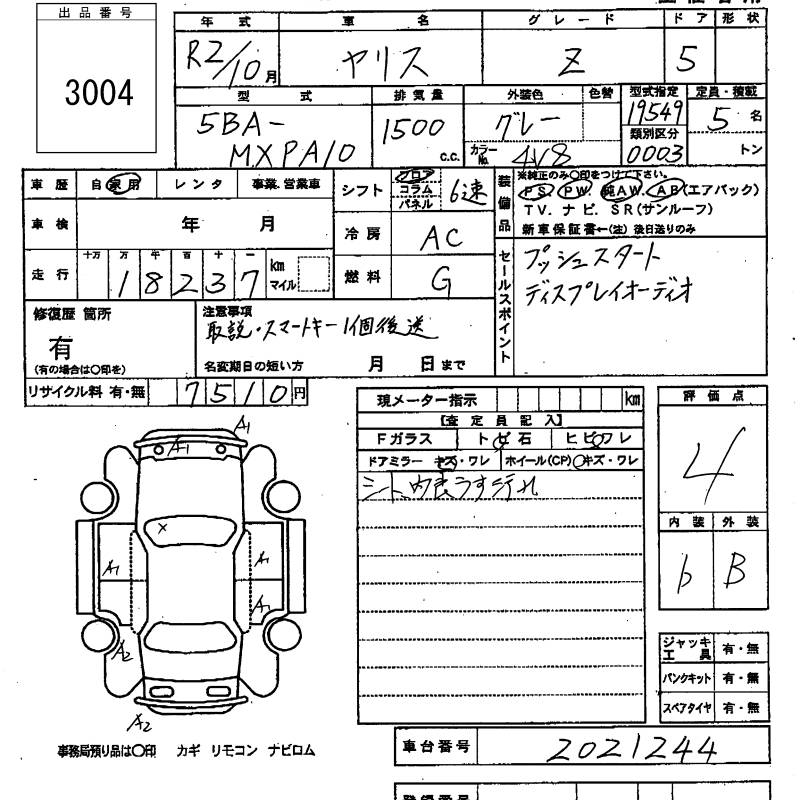 出品番号
3004
年式 車名 グレード ドア 形状
R2/10月 ヤリス Z 5
型式 排気量 外装色 色替 型式指定 定員・積載
5BA-
MXPA10 1500 c.c. グレー 19549 5名
カラーNo. 4V8 類別区分 0003 トン
車歴 自家用 レンタ 事業.営業車
シフト フロア コラム パネル 6速
装備品 ※純正のみ○印をつけて下さい。
PS. PW. 純AW. AB(エアバック)
TV. ナビ. SR(サンルーフ)
新車保証書←(注) 後日送りのみ
車検 年 月
冷房 AC
走行 十万 万 千 百 十 一
18237 km マイル
燃料 G
セールスポイント
プッシュスタート
ディスプレイオーディオ
修復歴 箇所
有
(有の場合は○印を)
注意事項
取説・スマートキー1個後送
名変期日の短い方 月 日まで
リサイクル料 有・無 7510円
現メーター指示 km
【査定員記入】
Fガラス トビ石 ヒビワレ
ドアミラー キズ・ワレ ホイール(CP) キズ・ワレ
シート、内装うす汚れ
評価点
4
内装 外装
b B
A1
A1
x
A1 A1
A1
A2
A2
ジャッキ工具 有・無
パンクキット 有・無
スペアタイヤ 有・無
事務局預り品は○印 カギ リモコン ナビロム
車台番号 2021244